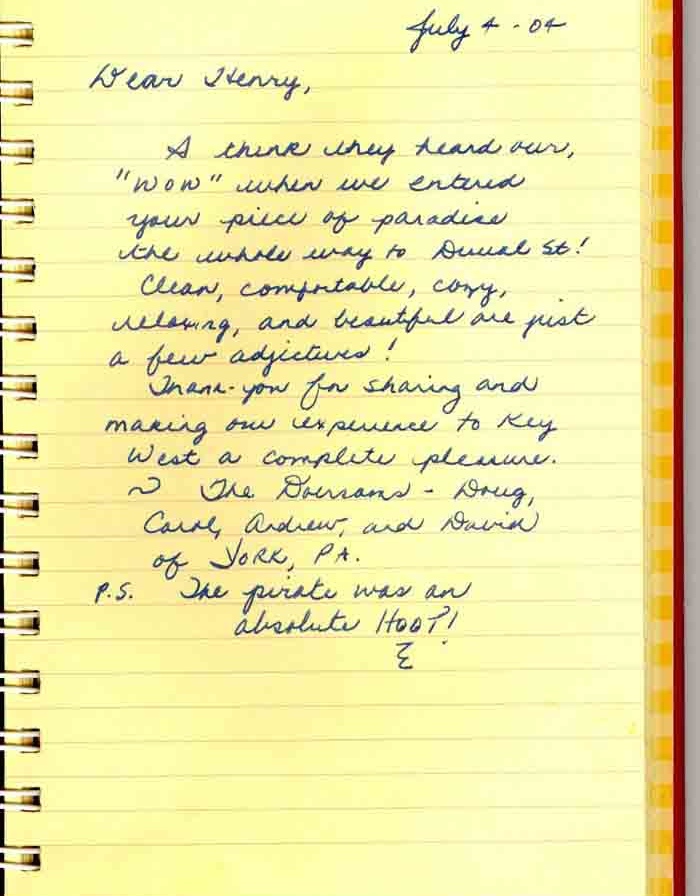 July 4 - 04
Dear Henry,
I think they heard our,
"WOW" when we entered
your piece of paradise
the whole way to Duval St!
Clean, comfortable, cozy,
relaxing, and beautiful are just
a few adjectives!
Thank-you for sharing and
making our experience to Key
West a complete pleasure.
~ The Doersoms - Doug,
Carol, Andrew, and David
of YORK, PA.
P.S. The pirate was an
absolute HOOT!